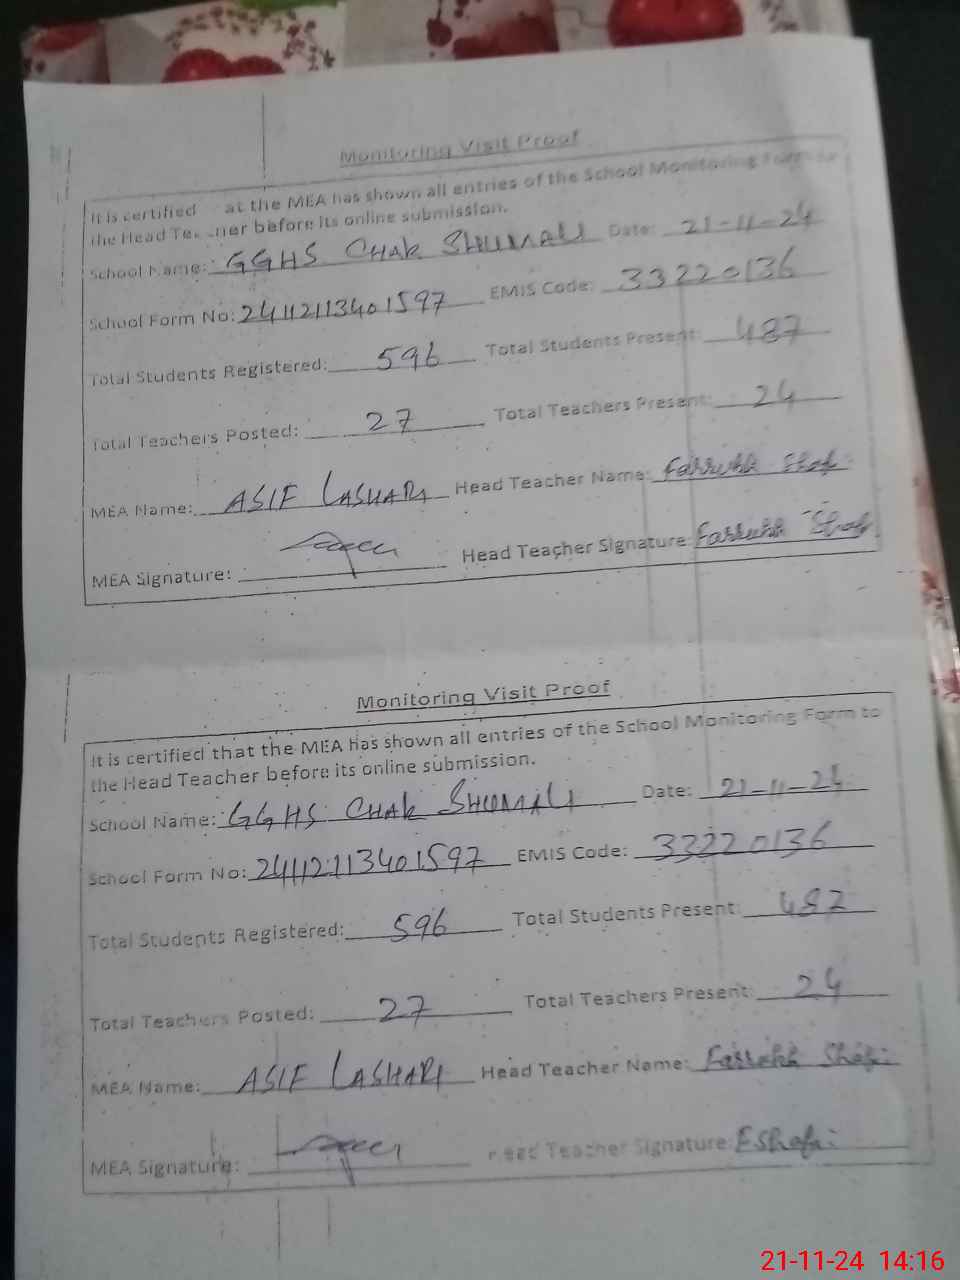 Monitoring Visit Proof
It is certified at the MEA has shown all entries of the School Monitoring Form to
the Head Teacher before its online submission.
School Name: GGHS CHAK SHUMALI Date: 21-11-24
School Form No: 24112113401597 EMIS Code: 33220136
Total Students Registered: 596 Total Students Present: 487
Total Teachers Posted: 27 Total Teachers Present: 24
MEA Name: ASIF LASHARI Head Teacher Name: Farrukh Shafi
MEA Signature: Head Teacher Signature Farrukh Shafi
Monitoring Visit Proof
It is certified that the MEA has shown all entries of the School Monitoring Form to
the Head Teacher before its online submission.
School Name: GGHS CHAK SHUMALI Date: 21-11-24
School Form No: 24112113401597 EMIS Code: 33220136
Total Students Registered: 596 Total Students Present: 487
Total Teachers Posted: 27 Total Teachers Present: 24
MEA Name: ASIF LASHARI Head Teacher Name: Farrukh Shafi
MEA Signature: Head Teacher Signature: FShafi
21-11-24 14:16